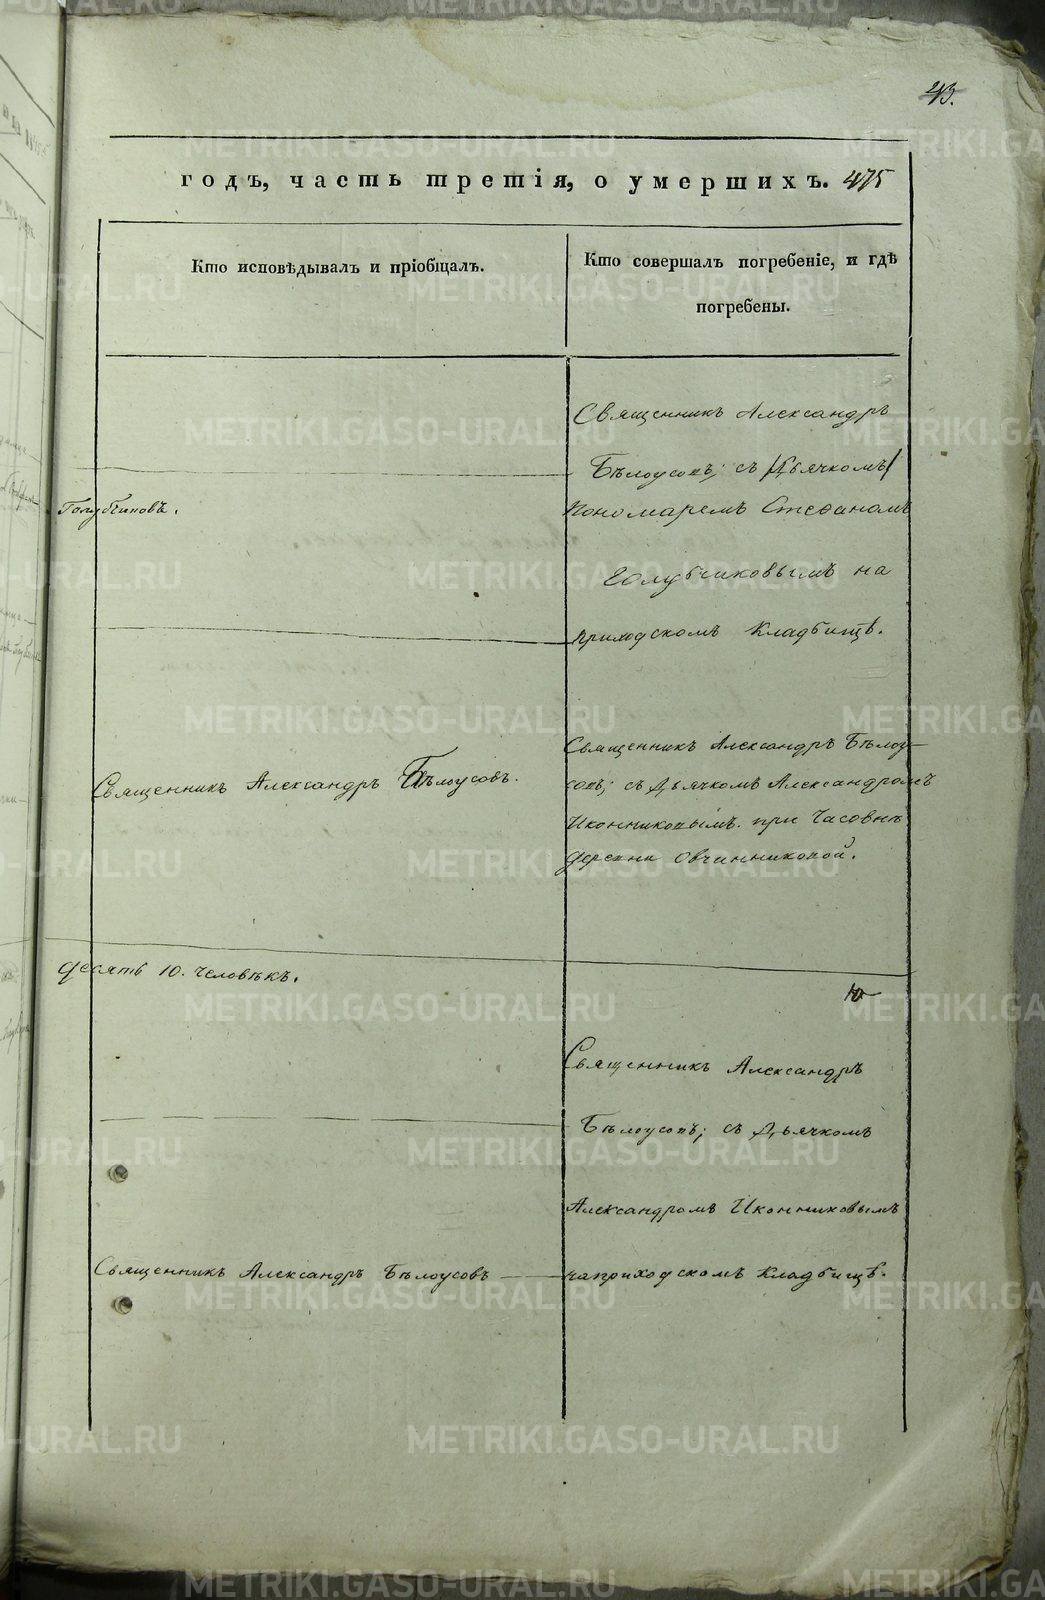 43.
годъ, часть третія, о умершихъ. 475
Кто исповѣдывалъ и пріобщалъ.
Кто совершалъ погребеніе, и гдѣ
погребены.
Священникъ Александръ
Бѣлоусовъ; съ /Дьячкомъ/
Голубчиковъ.
Пономаремъ Стефаномъ
Голубчиковымъ на
приходскомъ Кладбищѣ.
Священникъ Александръ Бѣлоусовъ.
Священникъ Александръ Бѣлоу-
совъ; съ Дьячкомъ Александромъ
Иконниковымъ. при Часовнѣ
деревни Овчинниковой.
десять 10. человѣкъ.
10
Священникъ Александръ
Бѣлоусовъ; съ Дьячкомъ
Александромъ Иконниковымъ
Священникъ Александръ Бѣлоусовъ
на приходскомъ Кладбищѣ.
METRIKI.GASO-URAL.RU